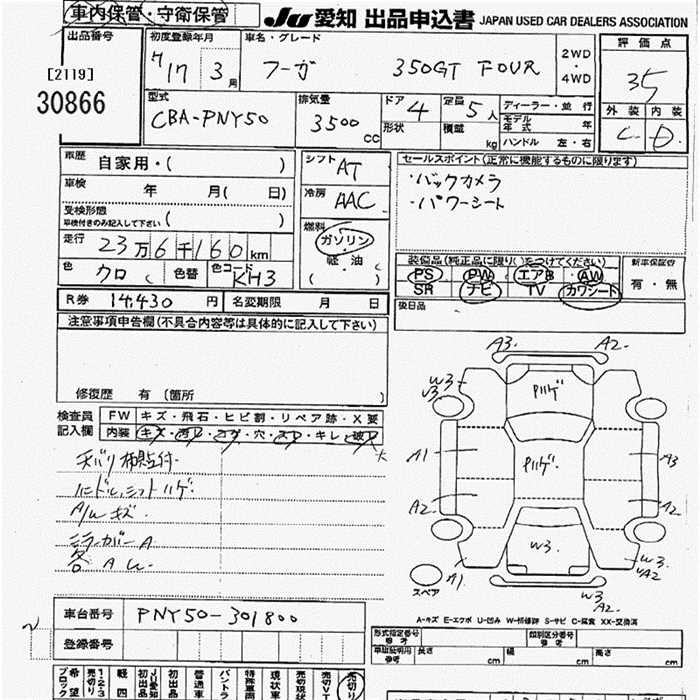 車内保管・守衛保管
JU 愛知 出品申込書 JAPAN USED CAR DEALERS ASSOCIATION
出品番号
[2119]
30866
初度登録年月
H17 3月
車名・グレード
フーガ 350GT FOUR
2WD
・
4WD
評価点
3.5
外装 内装
C D
型式
CBA-PNY50
排気量
3500 CC
ドア
4
形状
定員
5人
積載
kg
ディーラー・並行
モデル年式 年
ハンドル 左・右
車歴
自家用・( )
車検 年 月( 日)
受検形態
車検付きのみ記入して下さい ( )
走行
23万6千160km
色
クロ
色替
( )
色コード
KH3
シフト
AT
冷房
AAC
燃料
ガソリン
軽・油
( )
セールスポイント(正常に機能するものに限ります)
・バックカメラ
・パワーシート
装備品(純正品に限り○をつけてください)
PS PW エアB AW
SR ナビ TV カワシート
新車保証書
有・無
後日品
R券 14,430円 名変期限 月 日
注意事項申告欄(不具合内容等は具体的に記入して下さい)
修復歴 有(箇所 )
検査員記入欄
FW キズ・飛石・ヒビ割・リペア跡・X要
内装 キズ・汚レ・コゲ・穴・スレ・キレ・破レ 大
ハンドル,シフトハゲ
A/Wキズ.
ミラーカバーA
A3. A2.
W3
A1
A2
A3
A2
W3.
A1
W3
A2
W3
A2.
スペア
A-キズ E-エクボ U-凹み W-板修跡 S-サビ C-腐食 XX-交換済
車台番号
PNY50-301800
登録番号
形式指定番号
参考
類別区分番号
参考
車両諸元明細
参考
長さ cm
幅 cm
高さ cm
希望ブロック
売切り1・2・3
軽四
JU愛知初出品
初出品
普通車
バントラ
特殊車両
現状車
売切現状
売切VT
売切り